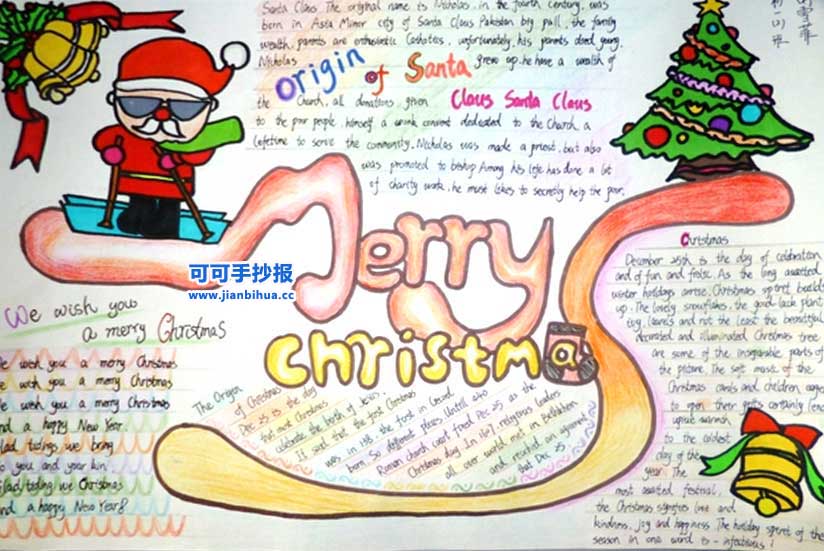 Santa Claus The original name is Nicholas, in the fourth century, was
born in Asia Minor city of Santa Claus Pakistan big pall, the family
wealth, parents are enthusiastic Catholics, unfortunately, his parents died young.
Nicholas grew up, he have a wealth of
origin of Santa
Claus Santa Claus
the Church, all donations given
to the poor people, himself a convent dedicated to the Church, a
lifetime to serve the community. Nicholas was made a priest, but also
was promoted to bishop Among his life has done a lot
of charity work, he must likes to secretly help the poor.
Merry
christmas
可可手抄报
www.jianbihua.cc
We wish you
a merry Christmas
We wish you a merry Christmas
We wish you a merry Christmas
We wish you a merry Christmas
And a happy New Year.
Glad tidings we bring
To you and your kin
Glad tiding we Christmas
And a happy New Year!
The Origin
of Christmas
Dec 25 is the day
that most Christmas
celebrate the birth of Jesus.
It said that the first Christmas
was in 138, the first in
born. So different places. Until
Roman church fixed Dec 25 as the
Christmas day. In religious leaders
all over world met in Bethlehem
and reached an agreement
that Dec 25.
Christmas
December 25th is the day of celebration
and of fun and frolic. As the long awaited
winter holidays arrive, Christmas builds
up. The lovely snowflakes, the good-luck plant
ivy, laurels and not the least the beautiful
decorated and illuminated Christmas tree
are some of the inseparable parts of
the picture. The soft music of the
Christmas carols and children eager
to open their gifts certainly lend
warmth
to the coldest
day of the
year. The
most awaited festival,
the Christmas signifies love and
kindness, joy and happiness. The holiday spirit of the
season in one word is - infectious!